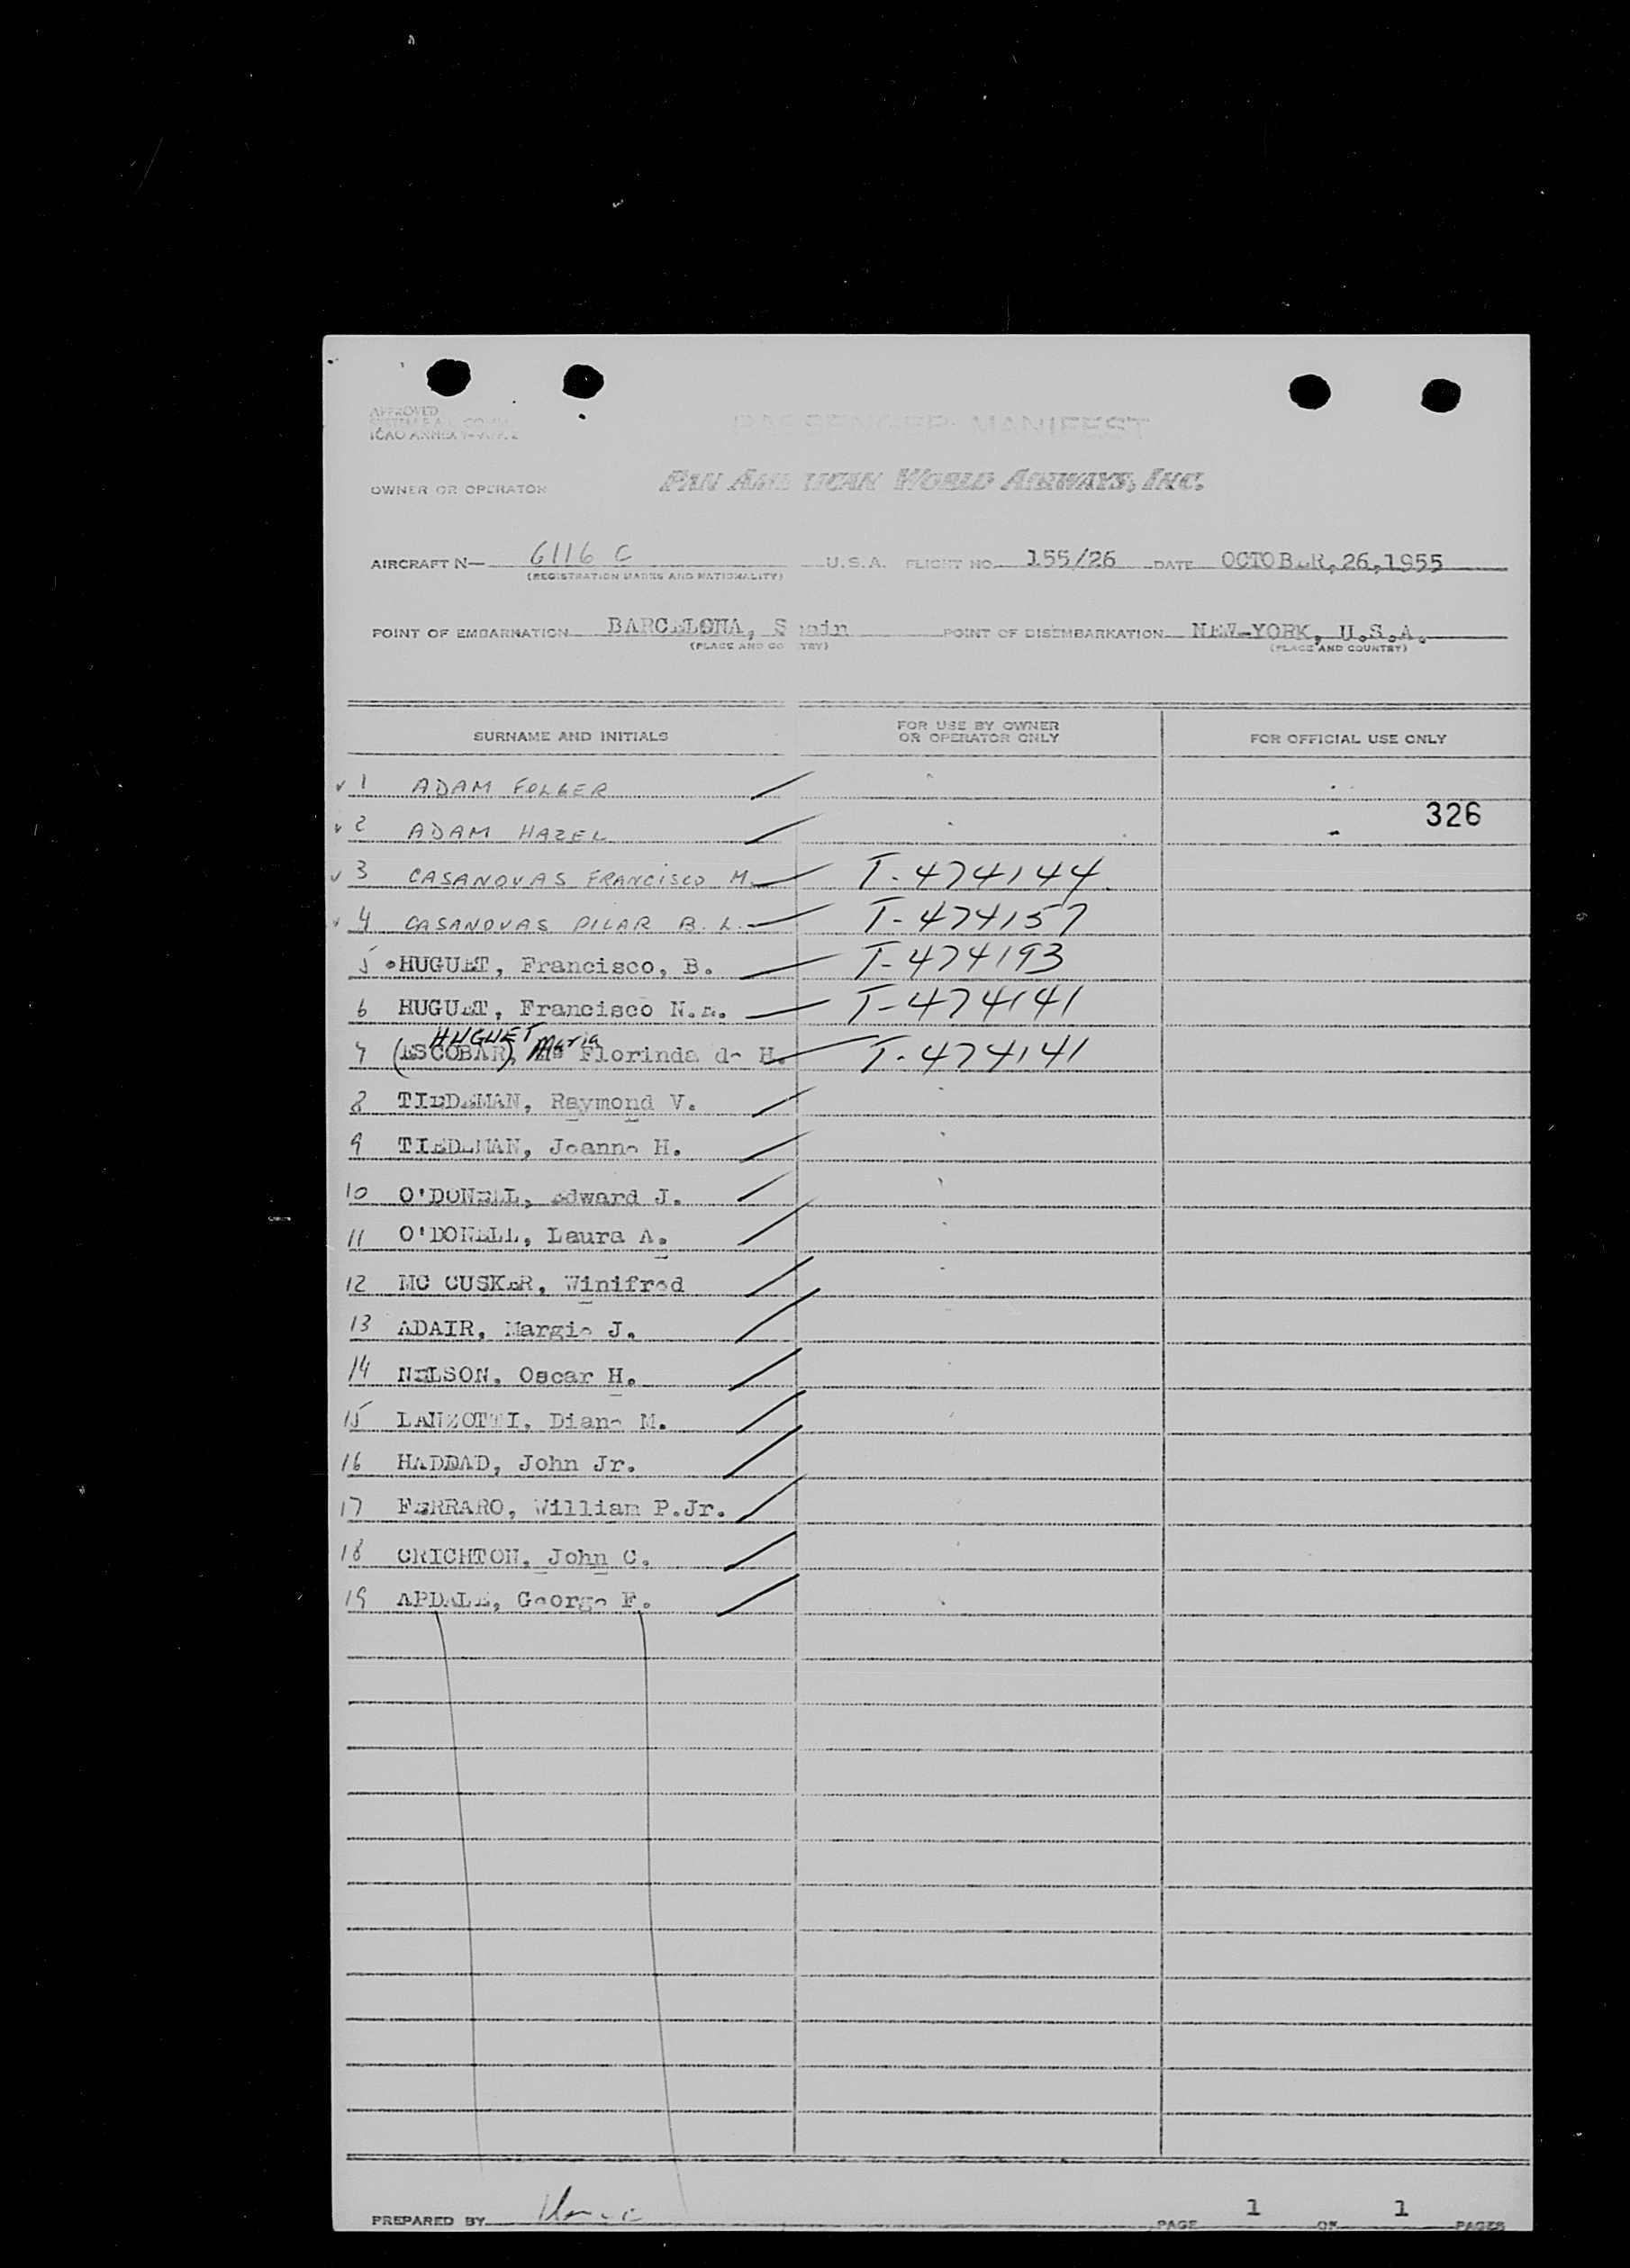 APPROVED
ICAO ANNEX 9-
PASSENGER MANIFEST
OWNER OR OPERATOR PAN AMERICAN WORLD AIRWAYS, INC.
AIRCRAFT N— 6116 C U.S.A. FLIGHT NO. 155/26 DATE OCTOBER,26,1955
(REGISTRATION MARKS AND NATIONALITY)
POINT OF EMBARKATION BARCELONA, Spain POINT OF DISEMBARKATION NEW-YORK, U.S.A.
(PLACE AND COUNTRY) (PLACE AND COUNTRY)
SURNAME AND INITIALS FOR USE BY OWNER OR OPERATOR ONLY FOR OFFICIAL USE ONLY
1 ADAM FOLGER
326
2 ADAM HAZEL
3 CASANOVAS FRANCISCO M. T-474144
4 CASANOVAS PILAR B. L. T-474157
5 HUGUET, Francisco, B. T-474193
6 HUGUET, Francisco N.E. T-474141
HUGUET Maria
7 (ESCOBAR), Florinda de H. T-474141
8 TIEDEMAN, Raymond V.
9 TIEDEMAN, Joanne H.
10 O'DONELL, Edward J.
11 O'DONELL, Laura A.
12 MC CUSKER, Winifred
13 ADAIR, Margie J.
14 NELSON, Oscar H.
15 LANZOTTI, Diane M.
16 HADDAD, John Jr.
17 FERRARO, William P.Jr.
18 CRICHTON, John C.
19 APDALE, George F.
PREPARED BY PAGE 1 OF 1 PAGES